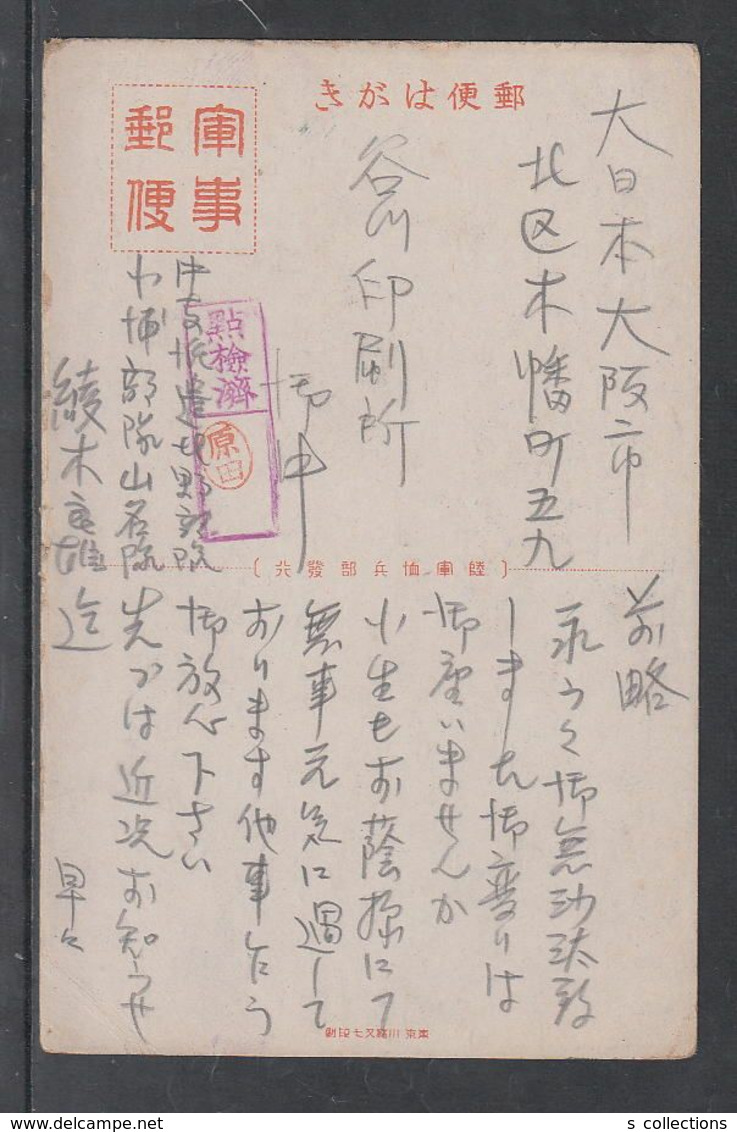 郵便はがき
軍事
郵便
大日本大阪市
北区木幡町五九
谷川印刷所
御中
點檢濟
原田
部隊山名隊
綾木
(陸軍恤兵部發行)
前略
永らく御無沙汰致
しました御変りは
御座いませんか
小生もお蔭様にて
無事元気に過して
おります他事乍ら
御放心下さい
先づは近況お知らせ
迄
早々
s collections